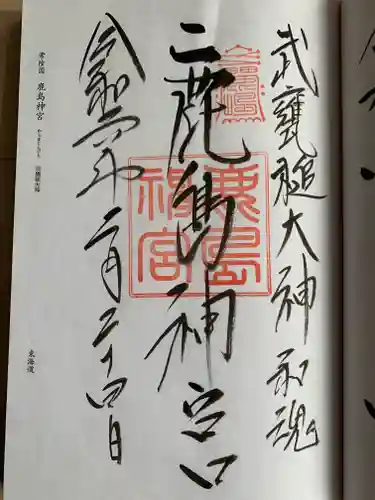 武甕槌大神和魂
鹿島神宮
令和六年二月二十四日
鹿島
神宮
常陸国 鹿島神宮 かしまじんぐう
東海道